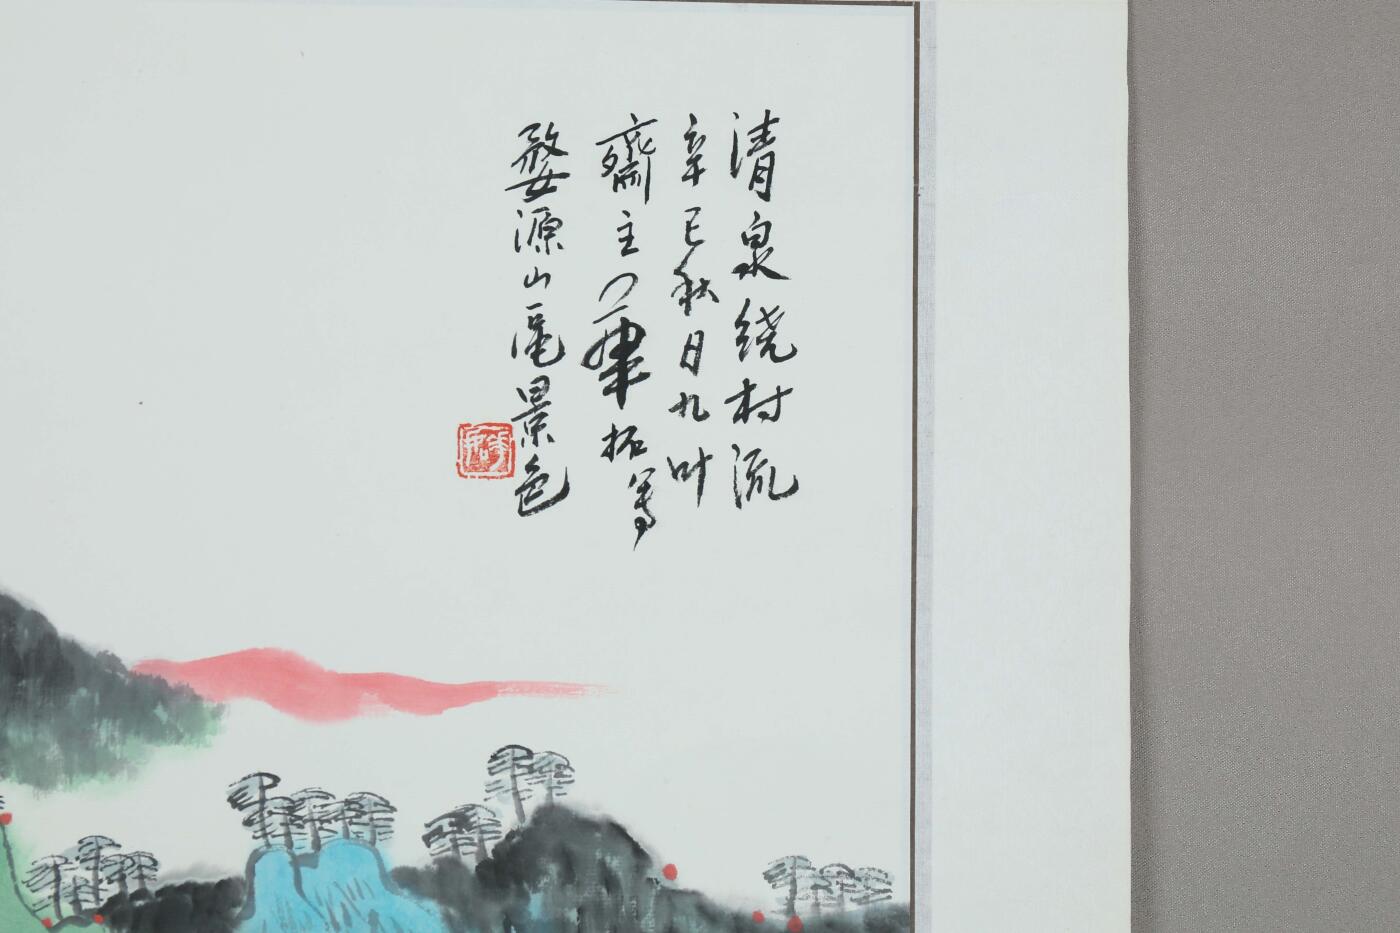 清泉绕村流
辛巳秋日九叶
齋主拓写
婺源山區景色